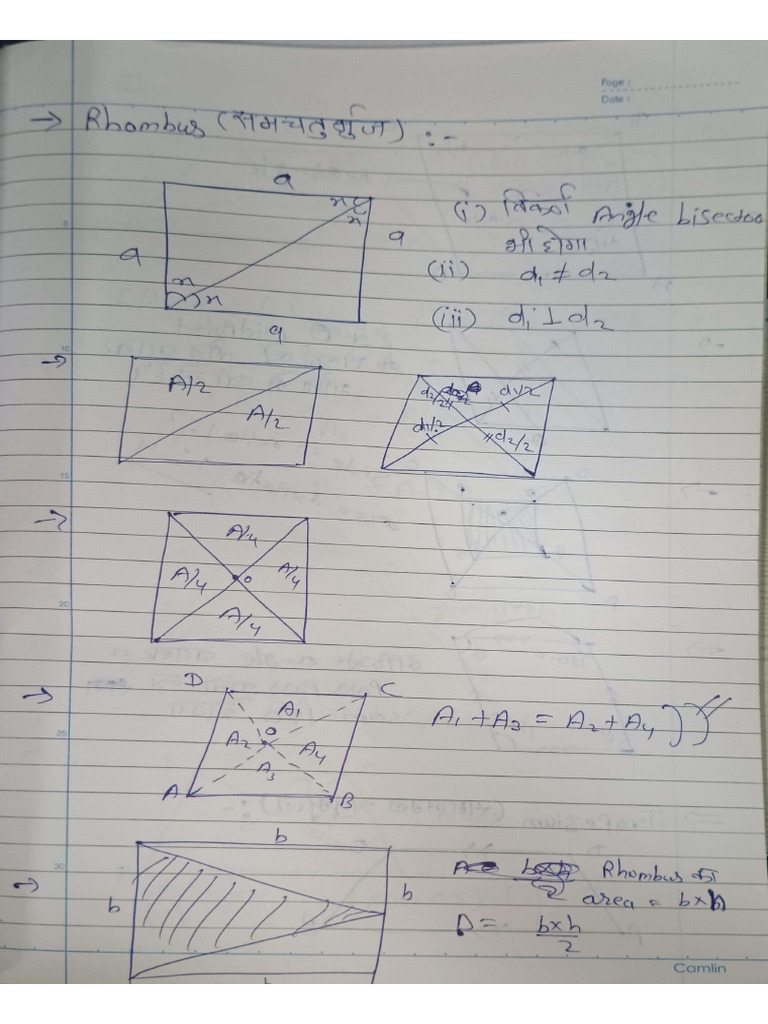 Page :
Date :
→ Rhombus (समचतुर्भुज) :-
a
x
x
a
a
x
x
a
(i) विकर्ण Angle bisector
भी होगा
(ii) d₁ ≠ d₂
(iii) d₁ ⊥ d₂
→
A/2
A/2
d₂/2
d₁/2
d₁/2
d₂/2
→
A/4
A/4
O
A/4
A/4
→
D
C
A₁
O
A₂
A₄
A₃
A
B
A₁ + A₃ = A₂ + A₄
→
b
b
b
b
Rhombus का
area = b×h
D = b×h/2
5
10
15
20
25
30
Camlin